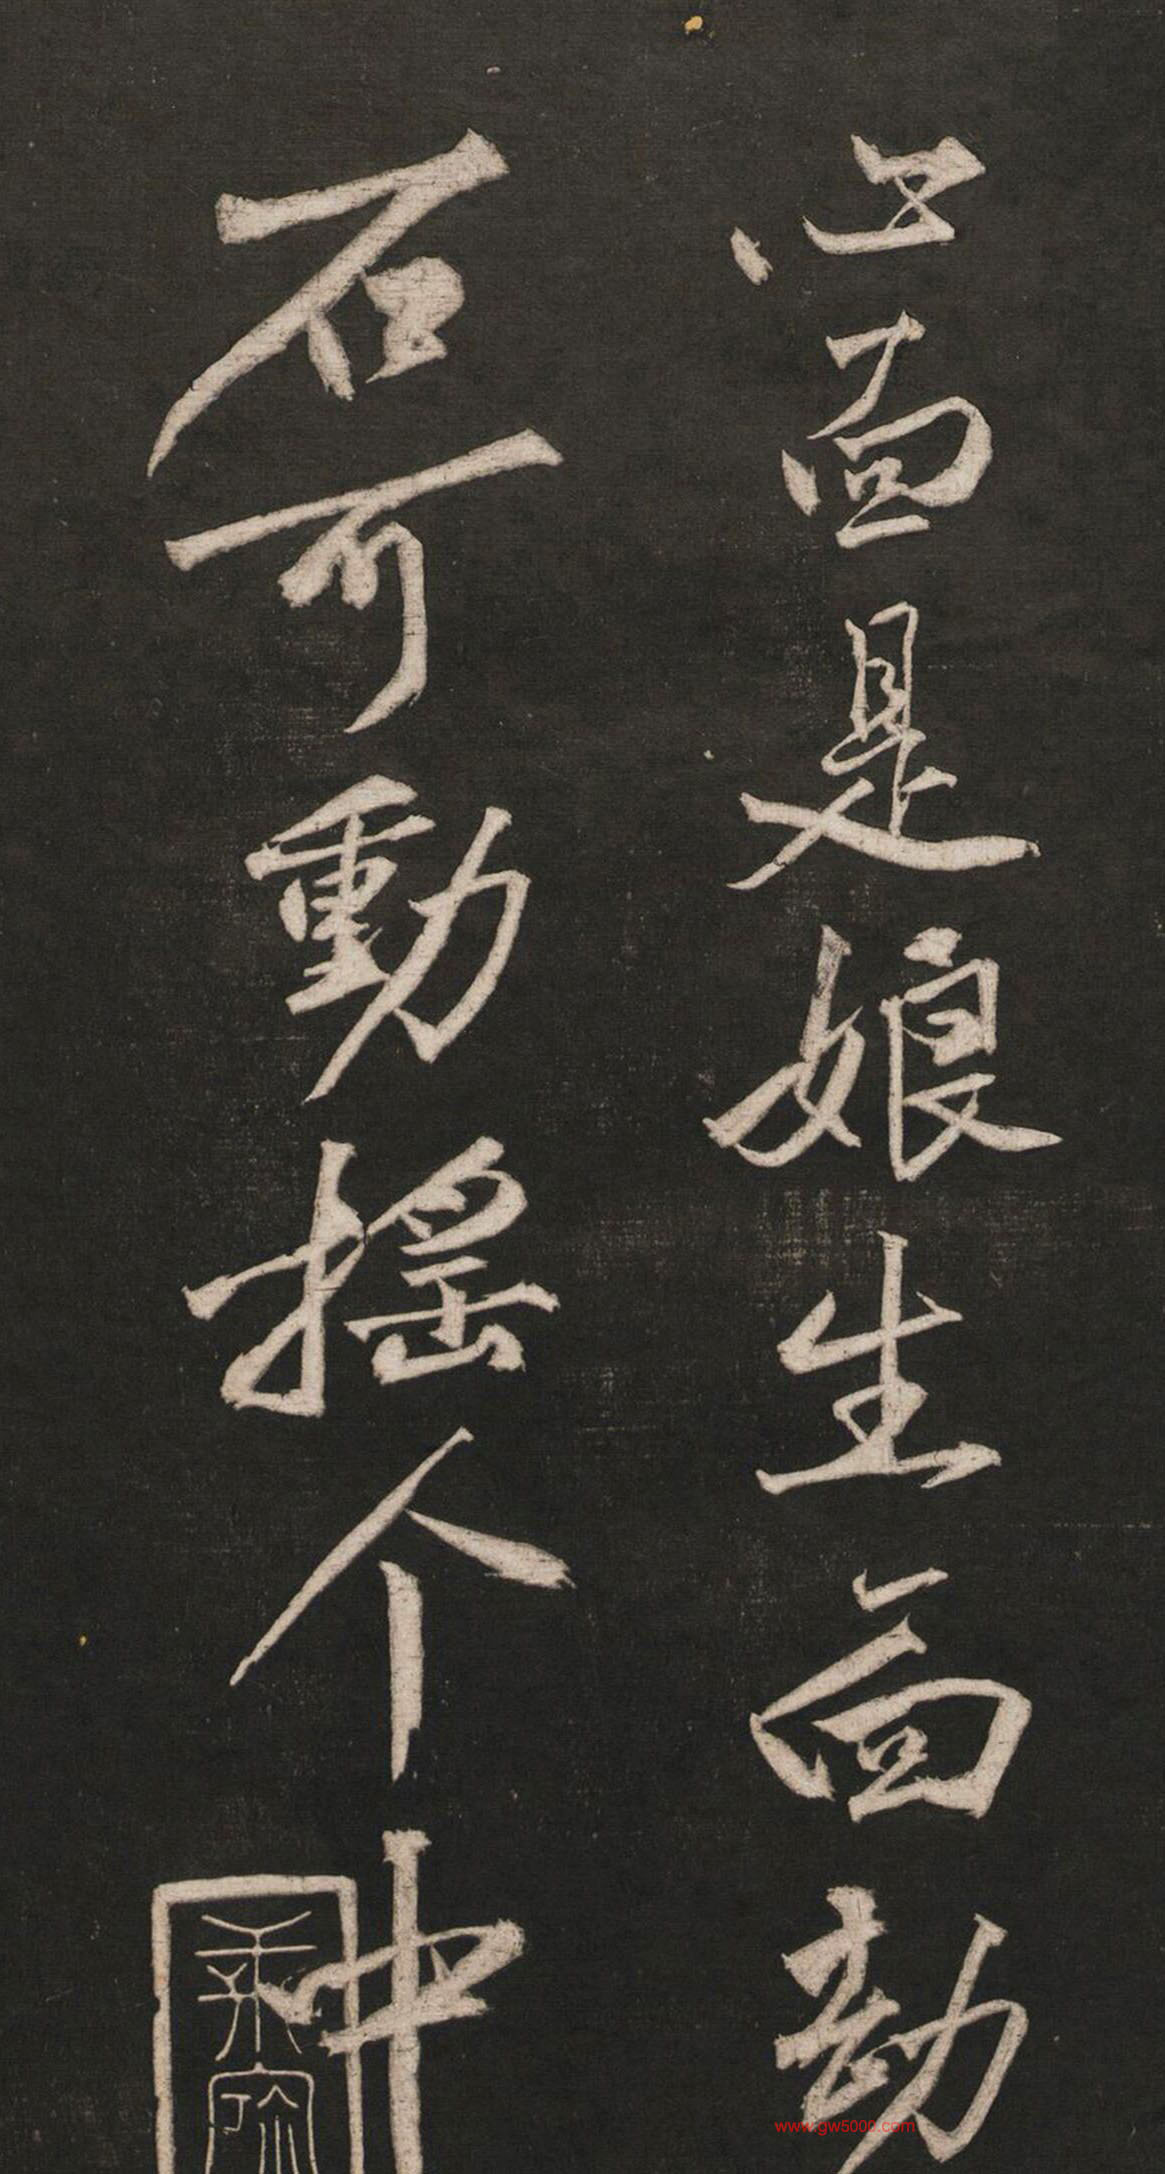 面是娘生面劫
石可動搖个中
www.gw5000.com